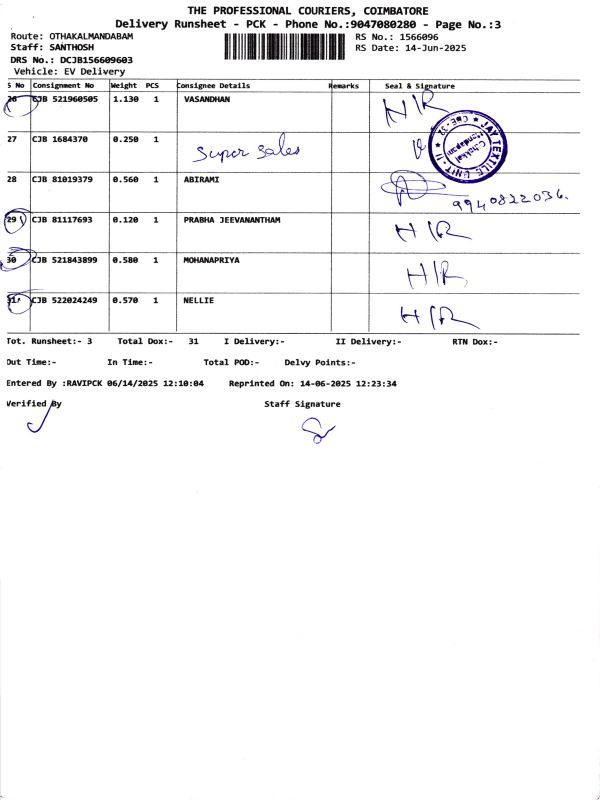 THE PROFESSIONAL COURIERS, COIMBATORE
Delivery Runsheet - PCK - Phone No.:9047080280 - Page No.:3
Route: OTHAKALMANDABAM RS No.: 1566096
Staff: SANTHOSH RS Date: 14-Jun-2025
DRS No.: DCJB156609603
Vehicle: EV Delivery
S No Consignment No Weight PCS Consignee Details Remarks Seal & Signature
26 CJB 521960505 1.130 1 VASANDHAN H/R
27 CJB 1684370 0.250 1 Super Sales JAY TEXTILE UNIT - II ★ CBE-32 ★ Othakkal Mandapam
28 CJB 81019379 0.560 1 ABIRAMI 9940822036.
29 CJB 81117693 0.120 1 PRABHA JEEVANANTHAM H/R
30 CJB 521843899 0.580 1 MOHANAPRIYA H/R
31 CJB 522024249 0.570 1 NELLIE H/R
Tot. Runsheet:- 3 Total Dox:- 31 I Delivery:- II Delivery:- RTN Dox:-
Out Time:- In Time:- Total POD:- Delvy Points:-
Entered By :RAVIPCK 06/14/2025 12:10:04 Reprinted On: 14-06-2025 12:23:34
Verified By Staff Signature